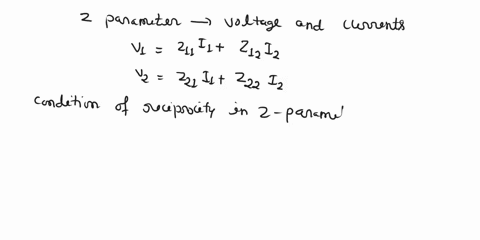 Z parameter → voltage and currents
V1 = Z11 I1 + Z12 I2
V2 = Z21 I1 + Z22 I2
condition of reciprocity in Z-parame